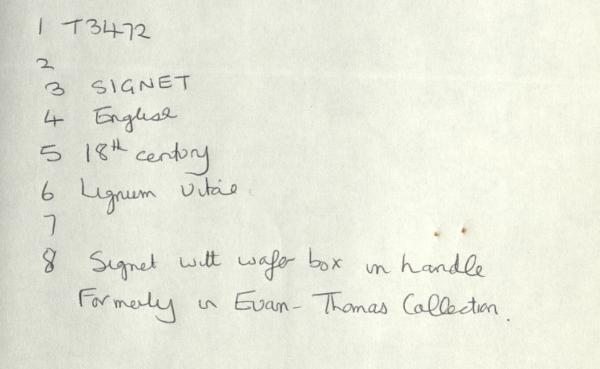 1 T3472
2
3 SIGNET
4 English
5 18th century
6 Lignum Vitae
7
8 Signet with wafer box in handle
Formerly in Evan-Thomas Collection.